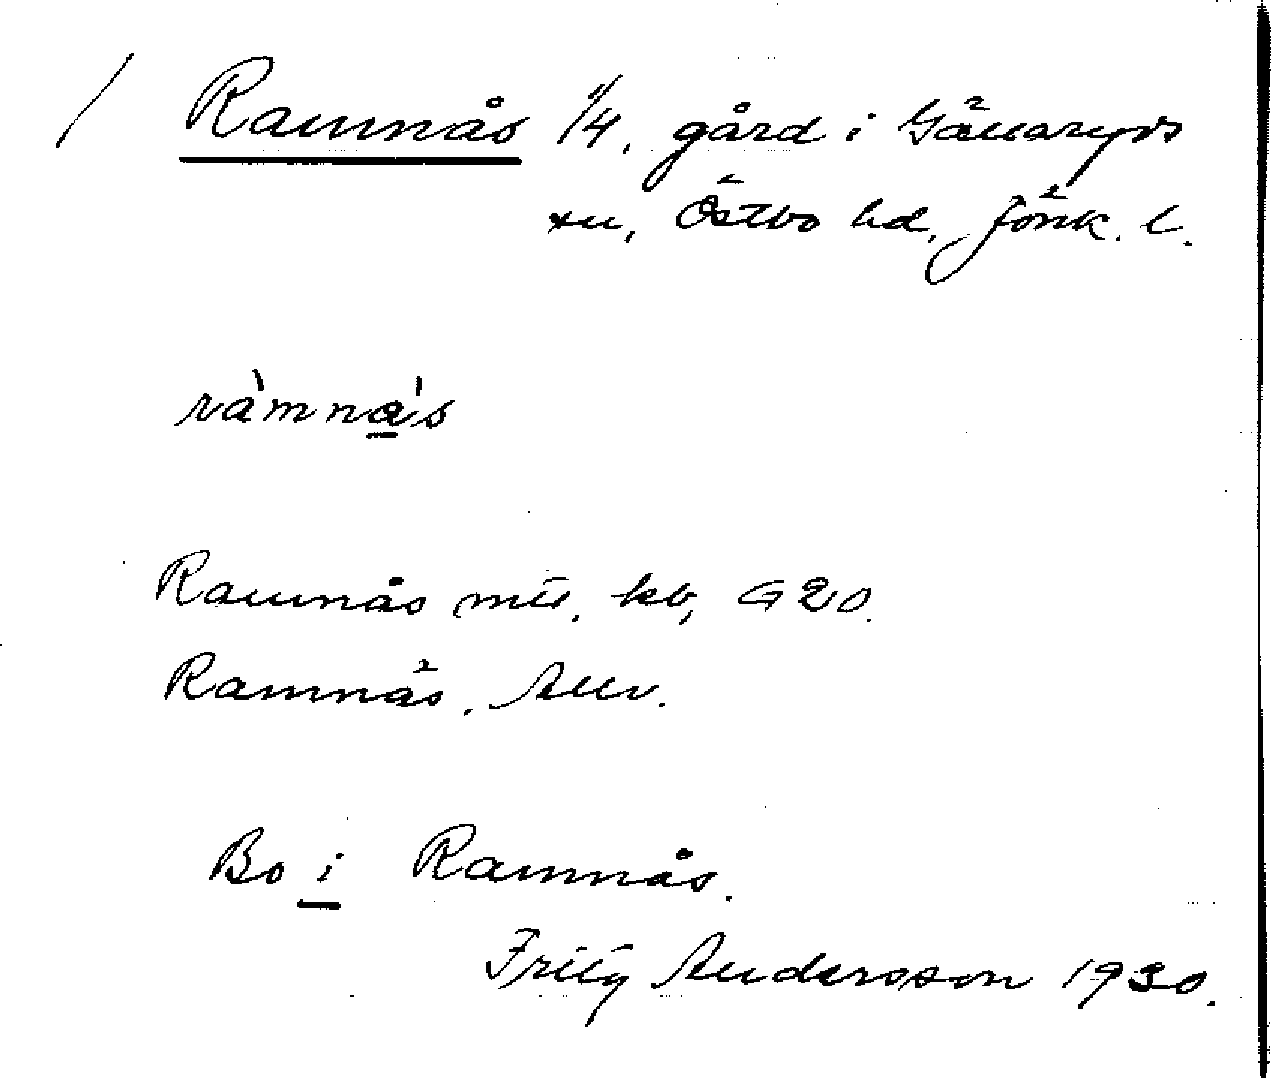 / Ramnås 1/4, gård i Gällaryds
sn, Östbo hd, Jönk. l.
ràmnás
Ramnås mtl. kb, G20.
Ramnäs.
Bo i Ramnås.
Fritz Andersson 1930.